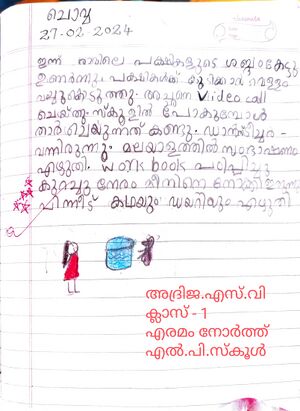 ചൊവ്വ
27-02-2024
ഇന്ന് രാവിലെ പക്ഷികളുടെ ശബ്ദം കേട്ടു
ഉണർന്നു. പക്ഷികൾക്ക് കുടിക്കാൻ വെള്ളം
വച്ചുകൊടുത്തു. അച്ഛനെ Video call
ചെയ്തു. സ്കൂളിൽ പോകുമ്പോൾ
താർ ചെയ്യുന്നത് കണ്ടു. ഡാൻസ് ടീച്ചർ
വന്നിരുന്നു. മലയാളത്തിൽ സംഭാഷണം
എഴുതി. work book പഠിപ്പിച്ചു
കുറച്ചു നേരം മീനിനെ നോക്കി ഇരുന്നു
പിന്നീട് കഥയും ഡയറിയും എഴുതി
അദ്രിജ.എസ്.വി
ക്ലാസ് - 1
എരമം നോർത്ത്
എൽ.പി.സ്കൂൾ